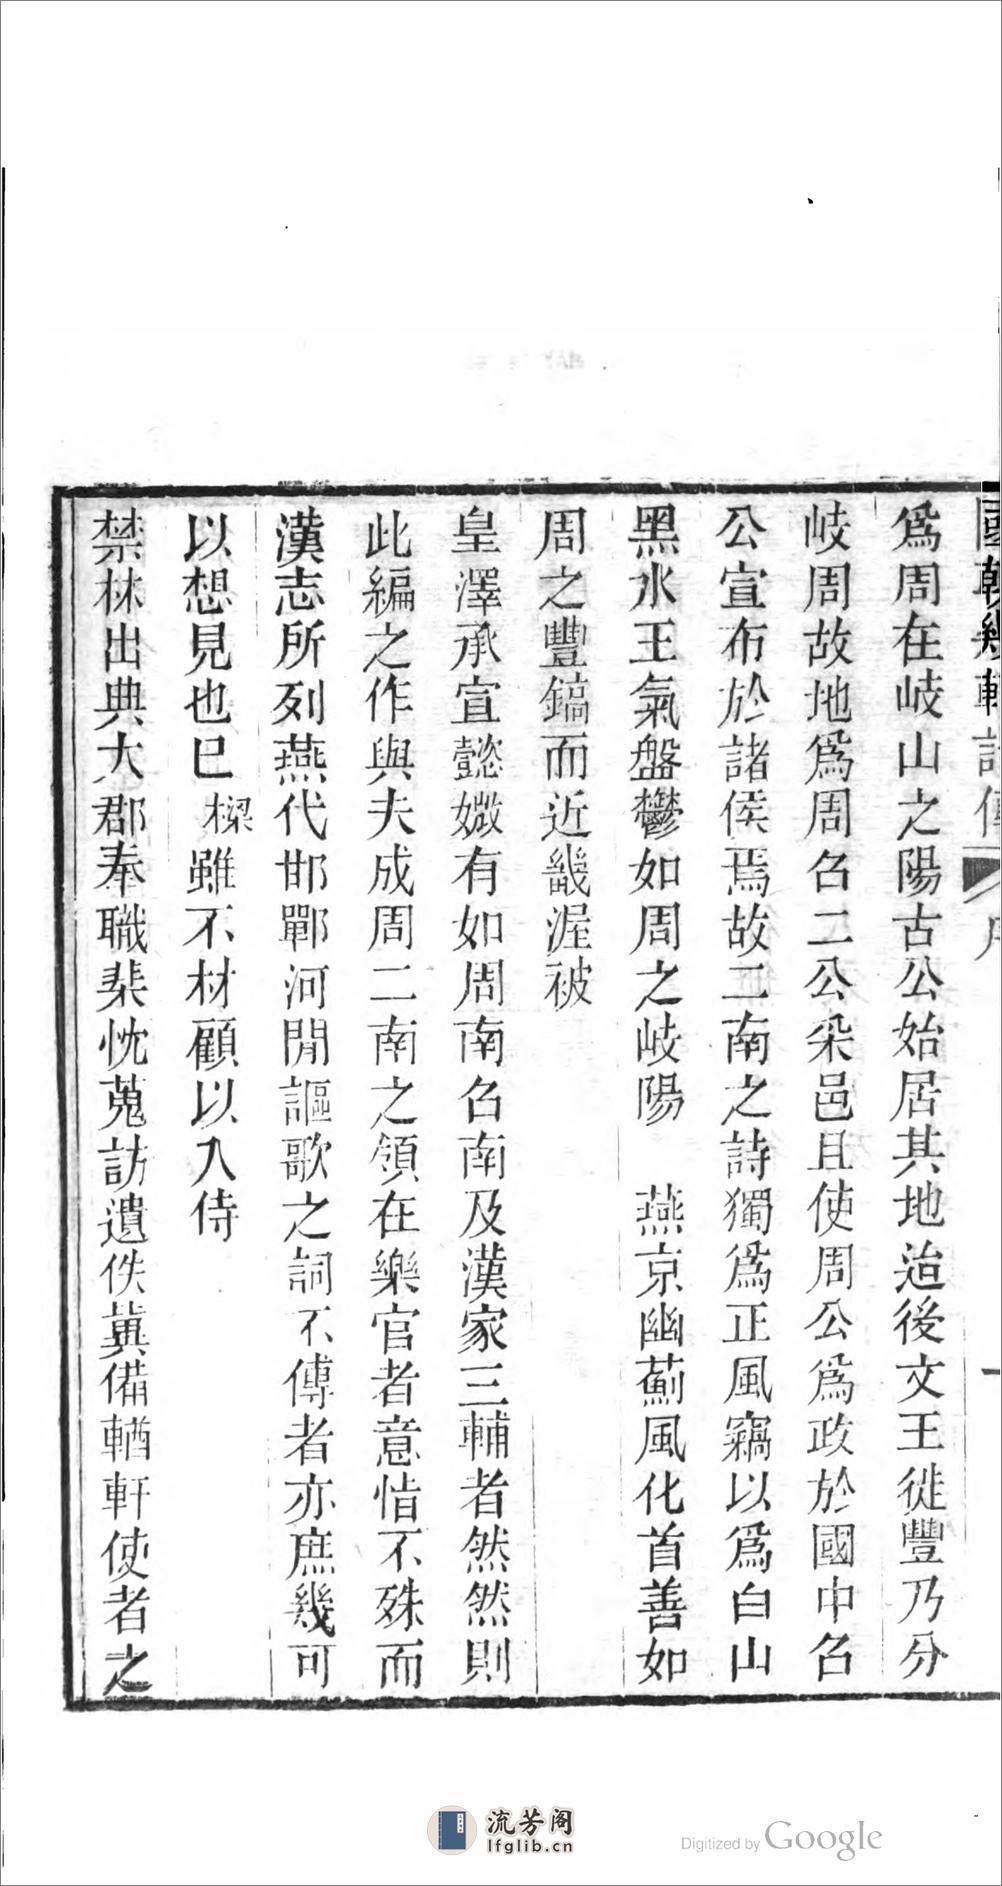 國朝畿輔詩傳 序 一
爲周在岐山之陽古公始居其地迨後文王徙豐乃分
岐周故地爲周召二公采邑且使周公爲政於國中召
公宣布於諸侯焉故二南之詩獨爲正風竊以爲白山
黑水王氣盤鬱如周之岐陽 燕京幽薊風化首善如
周之豐鎬而近畿渥被
皇澤承宣懿媺有如周南召南及漢家三輔者然然則
此編之作與夫成周二南之領在樂官者意恉不殊而
漢志所列燕代邯鄲河閒謳歌之詞不傳者亦庶幾可
以想見也已樑雖不材顧以入侍
禁林出典大郡奉職棐忱蒐訪遺佚冀備輶軒使者之
流芳阁
lfglib.cn
Digitized by Google